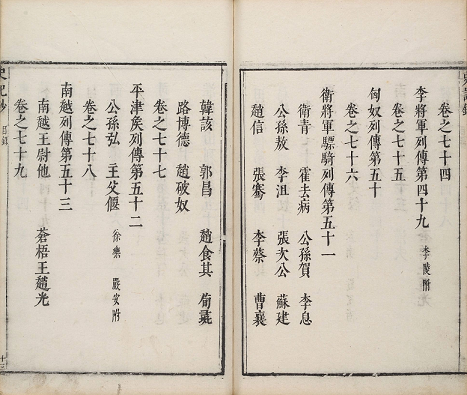 卷之七十四
李將軍列傳第四十九 李陵附
卷之七十五
匈奴列傳第五十
卷之七十六
衛將軍驃騎列傳第五十一
衛青 霍去病 公孫賀 李息
公孫敖 李沮 張次公 蘇建
趙信 張騫 李蔡 曹襄
韓說 郭昌 趙食其 荀彘
路博德 趙破奴
卷之七十七
平津矦列傳第五十二
公孫弘 主父偃 徐樂 嚴安附
卷之七十八
南越列傳第五十三
南越王尉佗 蒼梧王趙光
卷之七十九
史記鈔 目錄